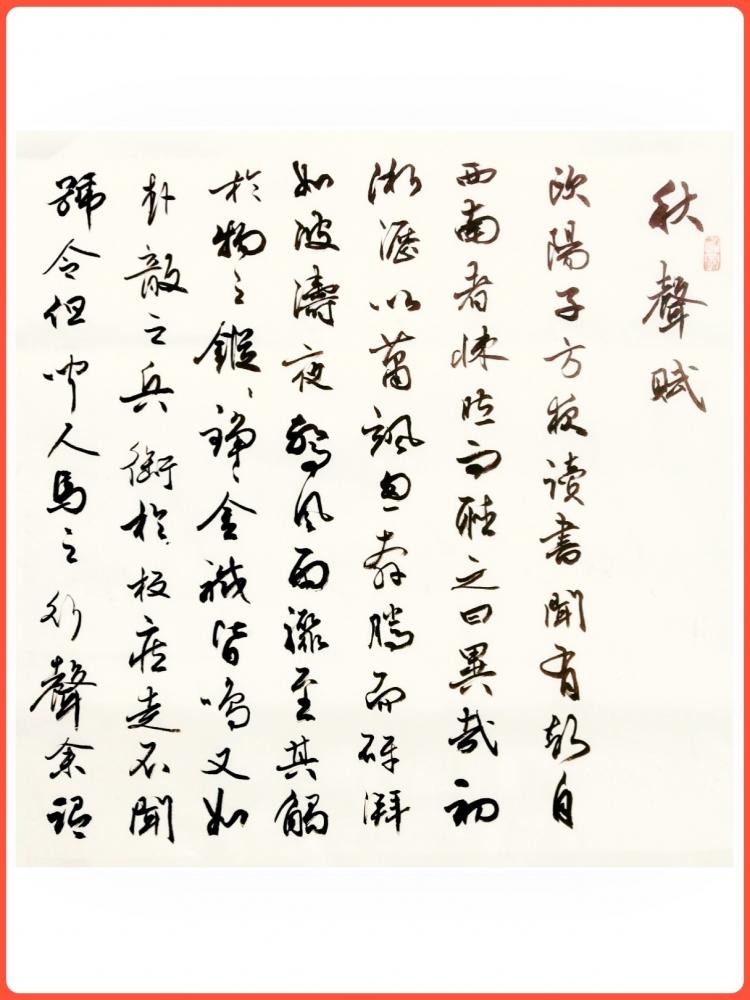 秋聲賦
欧陽子方夜读書聞有聲自
西南者悚然而聽之曰異哉初
淅瀝以蕭颯忽奔騰而砰湃
如波濤夜驚風雨驟至其觸
於物也鏦々錚々金鐵皆鳴又如
赴敵之兵銜於枚疾走不聞
號令但聞人馬之行聲余謂